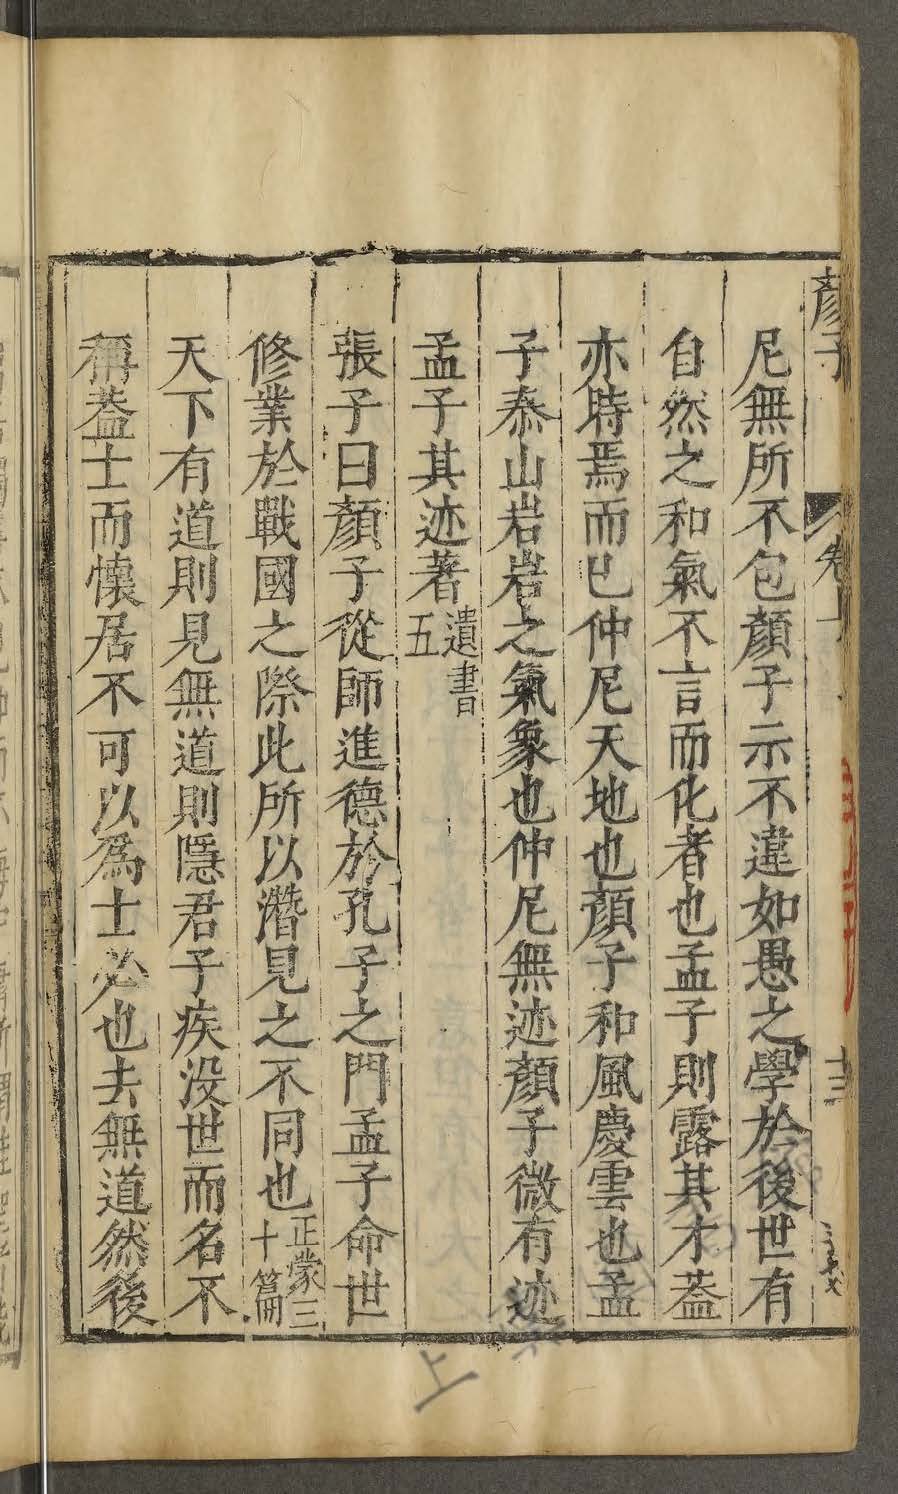 顏子 卷上 十三
尼無所不包顏子示不違如愚之學於後世有
自然之和氣不言而化者也孟子則露其才蓋
亦時焉而巳仲尼天地也顏子和風慶雲也孟
子泰山岩岩之氣象也仲尼無迹顏子微有迹
孟子其迹著遺書五
張子曰顏子從師進德於孔子之門孟子命世
修業於戰國之際此所以潛見之不同也正蒙三十篇
天下有道則見無道則隱君子疾没世而名不
稱蓋士而懷居不可以爲士必也去無道然後
上